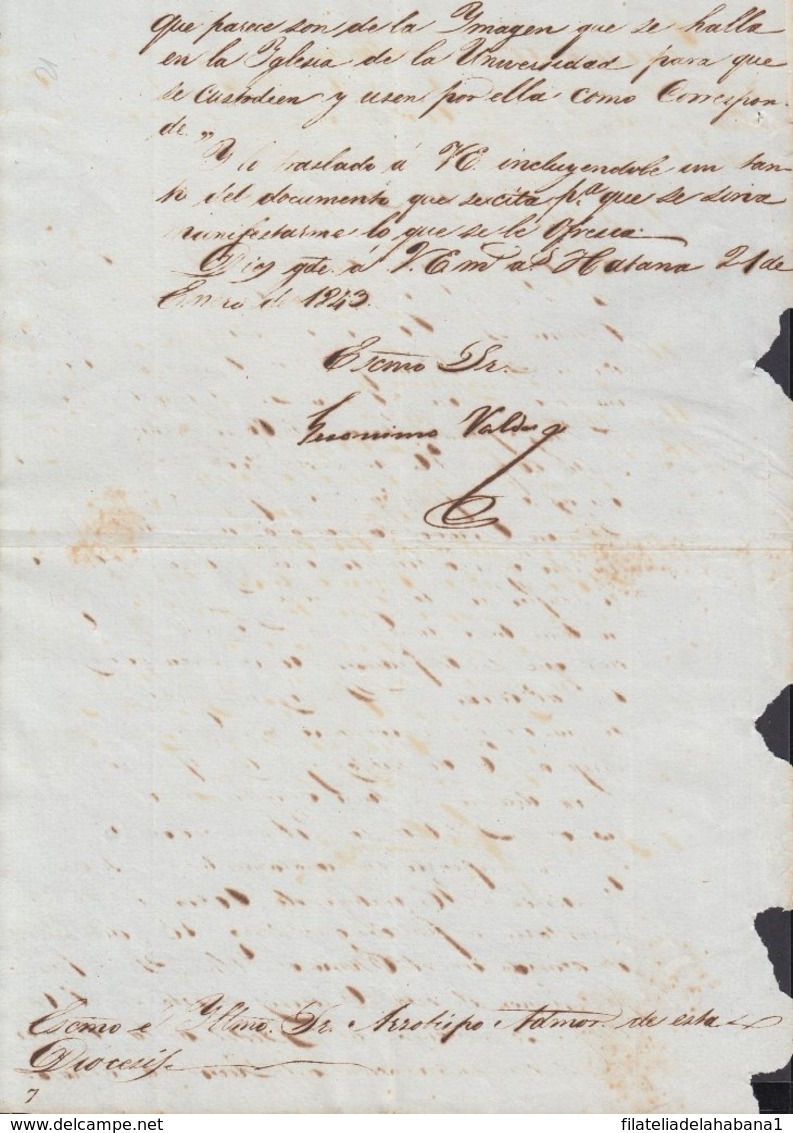 que parece son de la Ymagen que se halla
en la Yglesia de la Universidad para que
se custodien y usen por ella como Correspon-
de"
Y lo traslado á VE. incluyendole un tan-
to del documento que se cita pa. que se sirva
manifestarme lo que se le Ofresca.
Dios gde. á V.E. ms. as. Habana 21 de
Enero de 1843.
Escmo Sr.
Geronimo Valdes
Escmo é Yllmo. Sr. Arzobispo Admor. de esta
Diocesis.
7
filateliadelahabana1